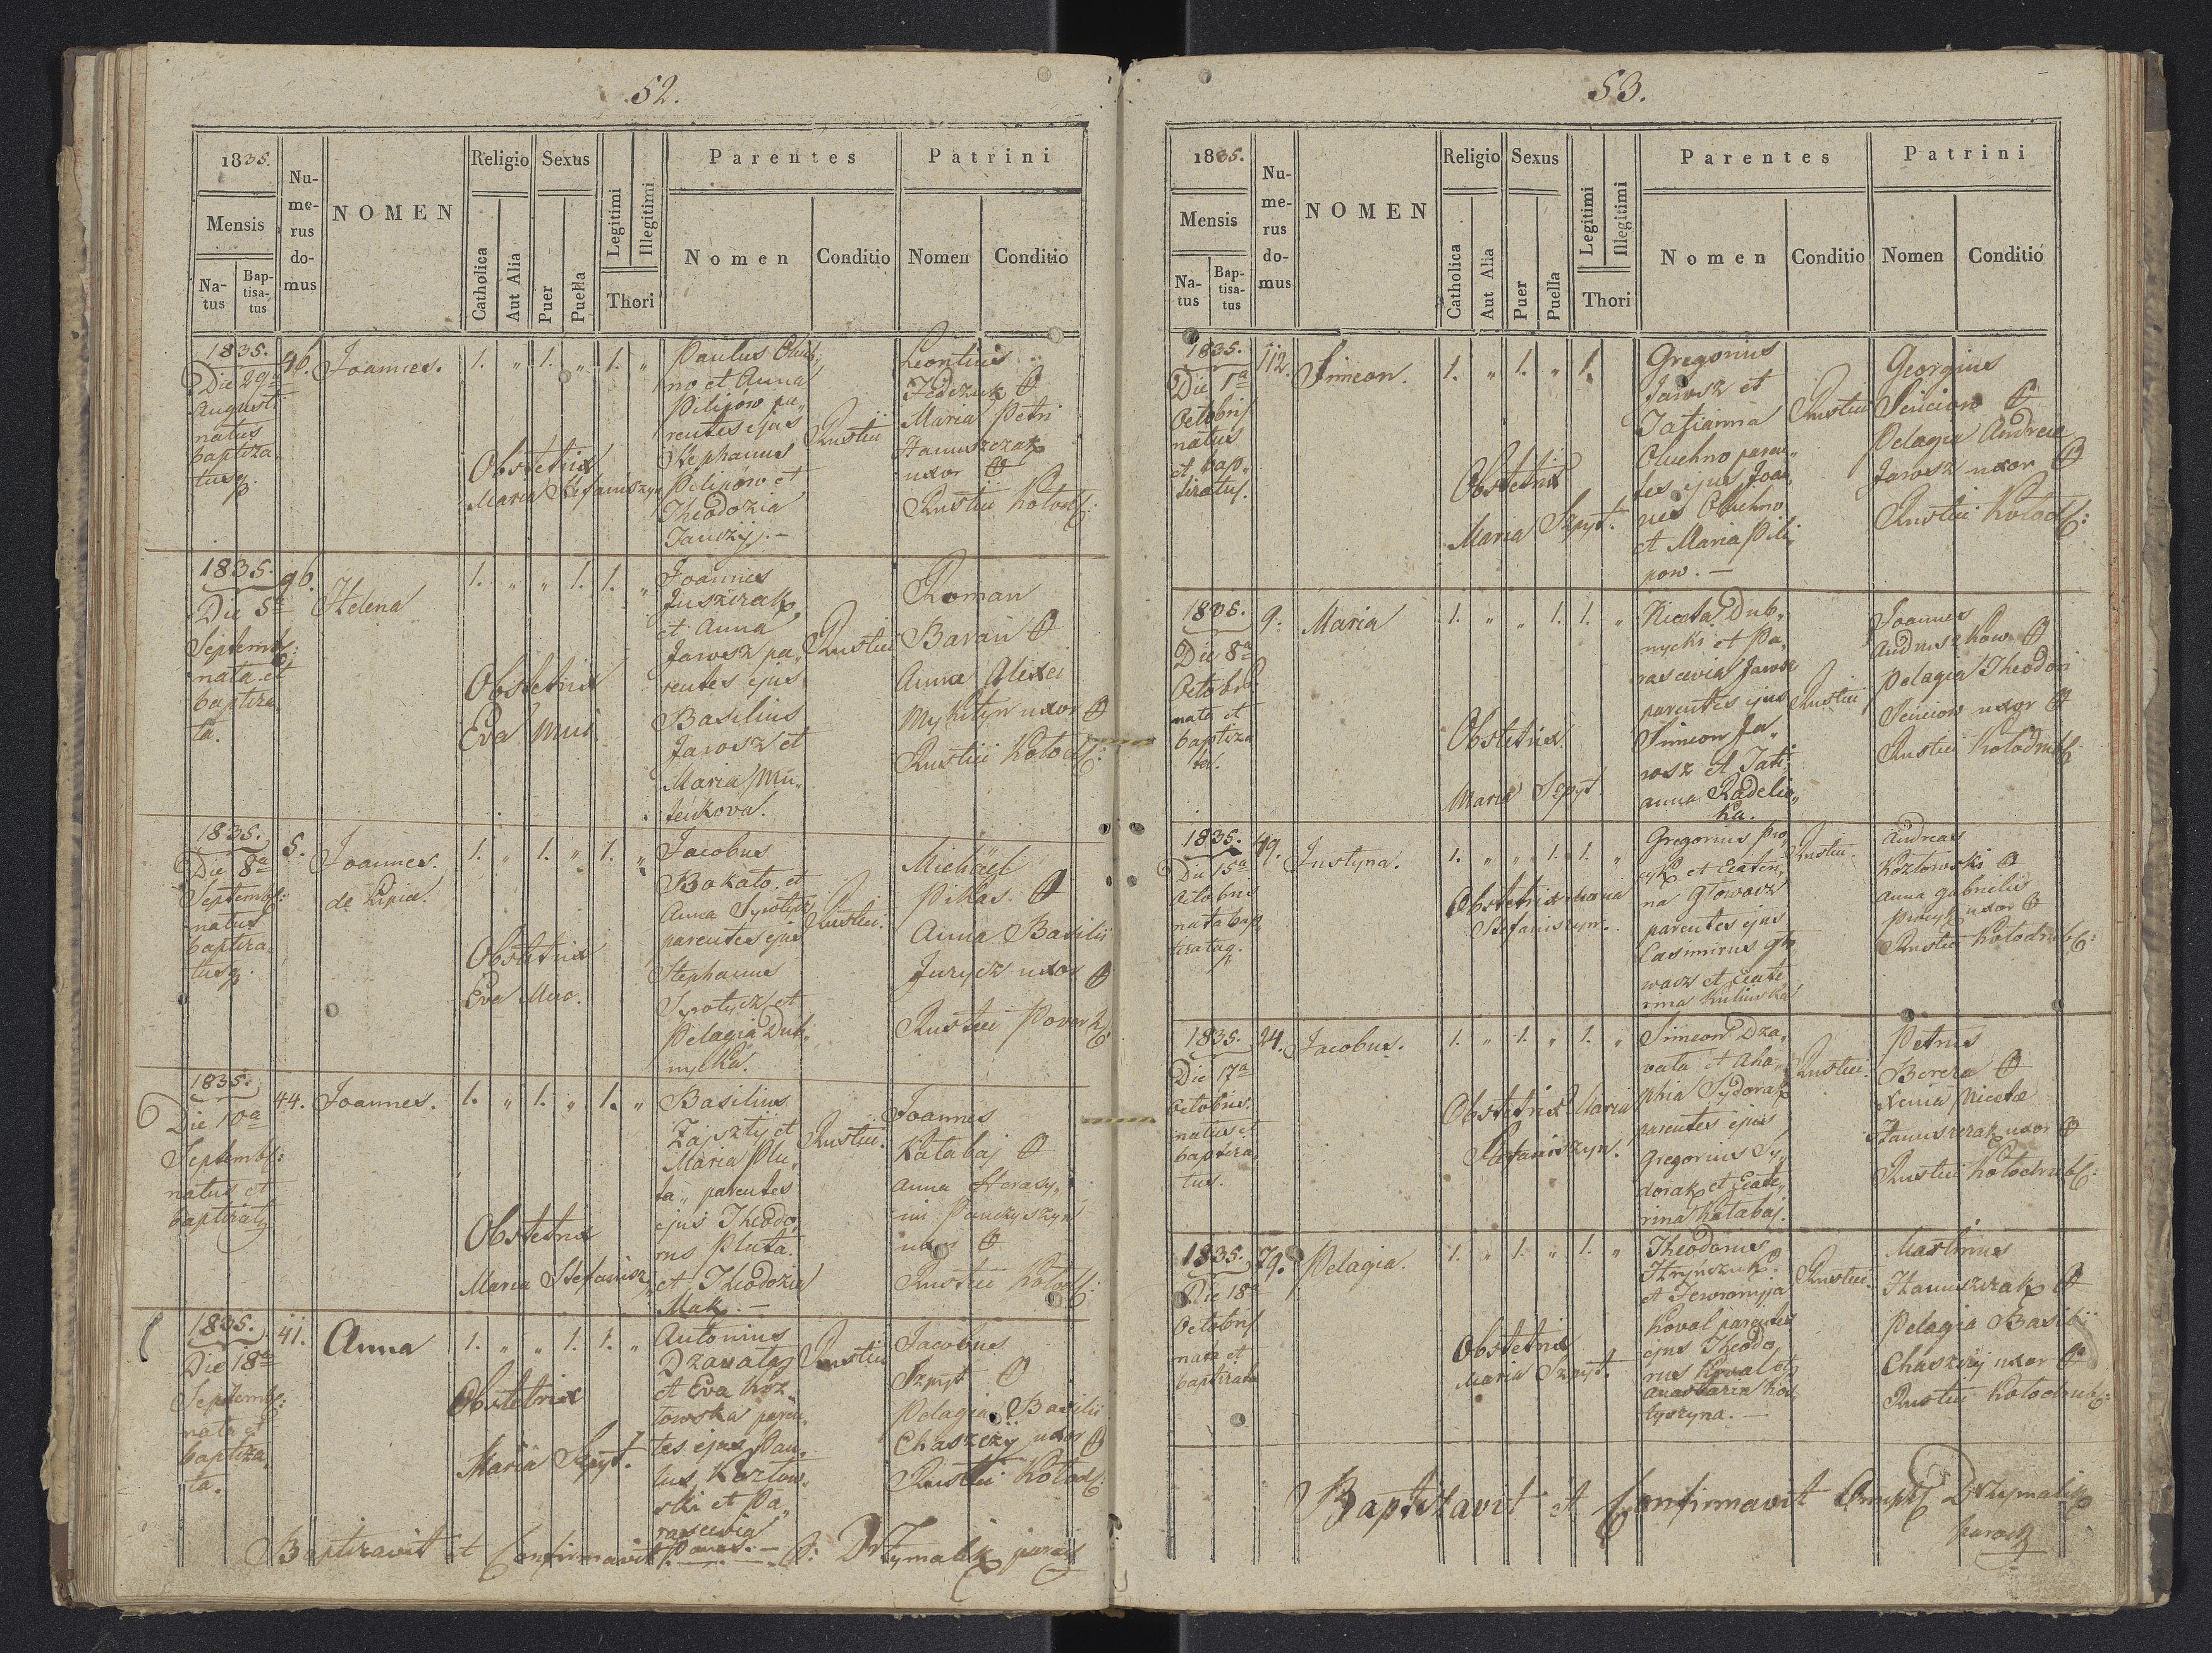 52.
1835.
Mensis
Na-
tus
Bap-
tisa-
tus
Nu-
me-
rus
do-
mus
NOMEN
Religio
Catholica
Aut Alia
Sexus
Puer
Puella
Legitimi
Illegitimi
Thori
Parentes
Nomen
Conditio
Patrini
Nomen
Conditio
1835.
Die 29a
Augusti
natus
baptiza,,
tusq
46.
Joannes.
1. " 1. " 1. "
Obstetrix
Maria Stefaniszyn
Paulus Oluch,,
no et Anna
Pilipow pa,,
rentes ejus
Stephanus
Pilipow et
Theodozia
Janciij.-
Rustici
Leontius
Fedczuk
Maria Petri
Hanuszczak
uxor
Rustici Kolod:
1835.
Die 5a
Septemb:
nata et
baptiza,,
ta.
96.
Helena
1. " " 1. 1. "
Obstetrix
Eva Mus.
Joannes
Juszczak
et Anna
Jarosz pa,,
rentes ejus
Basilius
Jarosz et
Maria Mu,,
Rustici
Roman
Baran
Anna Alexei
Mykityn uxor
Rustici Kolod:
1835.
Die 8a
Septemb:
natus
baptiza,,
tusq.
5.
Joannes.
de Lipica.
1. " 1. " 1. "
Obstetrix
Eva
Jacobus
Bakalo et
Anna Syrotycz
parentes ejus
Stephanus
Syrotycz et
Pelagia Dub,,
nycka.
Rustici.
Michael
Pikas.
Anna Basilii
Jurycz uxor
Rustici
1835.
Die 10a
Septemb:
natus et
baptizatq
44.
Joannes.
1. " 1. " 1. "
Obstetrix
Maria Stefanisz
Basilius
et
Maria Plu,,
ta,, parentes
ejus Theodo,,
rus Pluta.
et Theodozia
Mak.-
Rustici.
Joannes
Kalabaj
Anna Herasy,,
mi Panczyszyn
uxor
Rustici Kolod:
1835.
Die 18a
Septemb:
nata et
baptiza,,
ta.
41.
Anna
1. " " 1. 1. "
Obstetrix
Maria Szpyt.
Antonius
Dzavata
et Eva Koz,,
lowska paren,,
tes ejus Pau,,
lus Kozlow,,
ski et Pa,,
rascevia
Rustici
Jacobus
Szpyt
Pelagia Basilii
Chaszczij uxor
Rustici Kolod:
Baptizavit et Confirmavit
53.
1835.
Mensis
Na-
tus
Bap-
tisa-
tus
Nu-
me-
rus
do-
mus
NOMEN
Religio
Catholica
Aut Alia
Sexus
Puer
Puella
Legitimi
Illegitimi
Thori
Parentes
Nomen
Conditio
Patrini
Nomen
Conditio
1835.
Die 1a
Octobris
natus
et bap,,
tizatus.
112.
Simeon.
1. " 1. " 1.
Obstetrix
Maria Szpyt.
Gregorius
Jarosz et
Tatianna
Oluchno paren,,
tes ejus Joan,,
nes Oluchno
et Maria Pili,,
pow.-
Rustici
Georgius
Senciow
Pelagia Andreae
Jarosz uxor
Rustici Kolod:
1835.
Die 8a
Octobris
nata et
baptiza
ta.
9.
Maria
1. " " 1. 1. "
Obstetrix
Maria Szpyt
Niceta Dub,,
nycki et Pa,,
rascevia Jarosz
parentes ejus
Simeon Ja,,
rosz et Tati,,
anna Radelic,,
ka.
Rustici
Joannes
Andruszkow
Pelagia Theodori
Senciow uxor
Rustici Kolodrub
1835.
Die 15a
Octobris
nata bap,,
tizataq.
49.
Justyna.
1. " " 1. 1. "
Obstetrix Maria
Stefaniszyn.
Gregorius Pro,,
cyk et Ecateri,,
na Glowacz
parentes ejus
Casimirus Glo,,
wacz et Ecate
rina
Rustici.
Andreas
Kozlowski
Anna Gabrielis
Procyk uxor
Rustici Kolodrub:
1835.
Die 17a
Octobris.
natus et
baptiza,,
tus.
24.
Jacobus.
1. " 1. " 1. "
Obstetrix Maria
Stefaniszyn.
Simeon Dza,,
vata et Aha,,
phia Sydorak
parentes ejus
Gregorius Sy,,
dorak et Ecate,,
rina Kalabaj.
Rustici.
Petrus
Bereza
Xenia Nicetae
Hanuszczak uxor
Rustici Kolodrub:
1835.
Die 18a
Octobris
nata et
baptizata
79.
Pelagia.
1. " 1. " 1. "
Obstetrix
Maria Szpyt.
Theodorus
Hrynczuk
et
Koval parentes
ejus Theodo,,
rus Koval et
Anastazia
Rustici.
Maximus
Hanuszczak
Pelagia Basilii
Chaszczij uxor
Rustici Kolodrub:
Baptizavit et Confirmavit